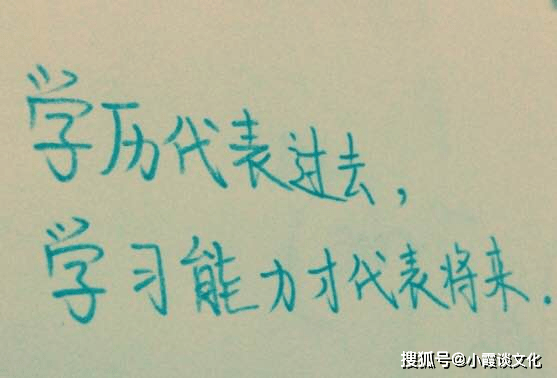 学历代表过去，
学习能力才代表将来.
搜狐号@小霞谈文化